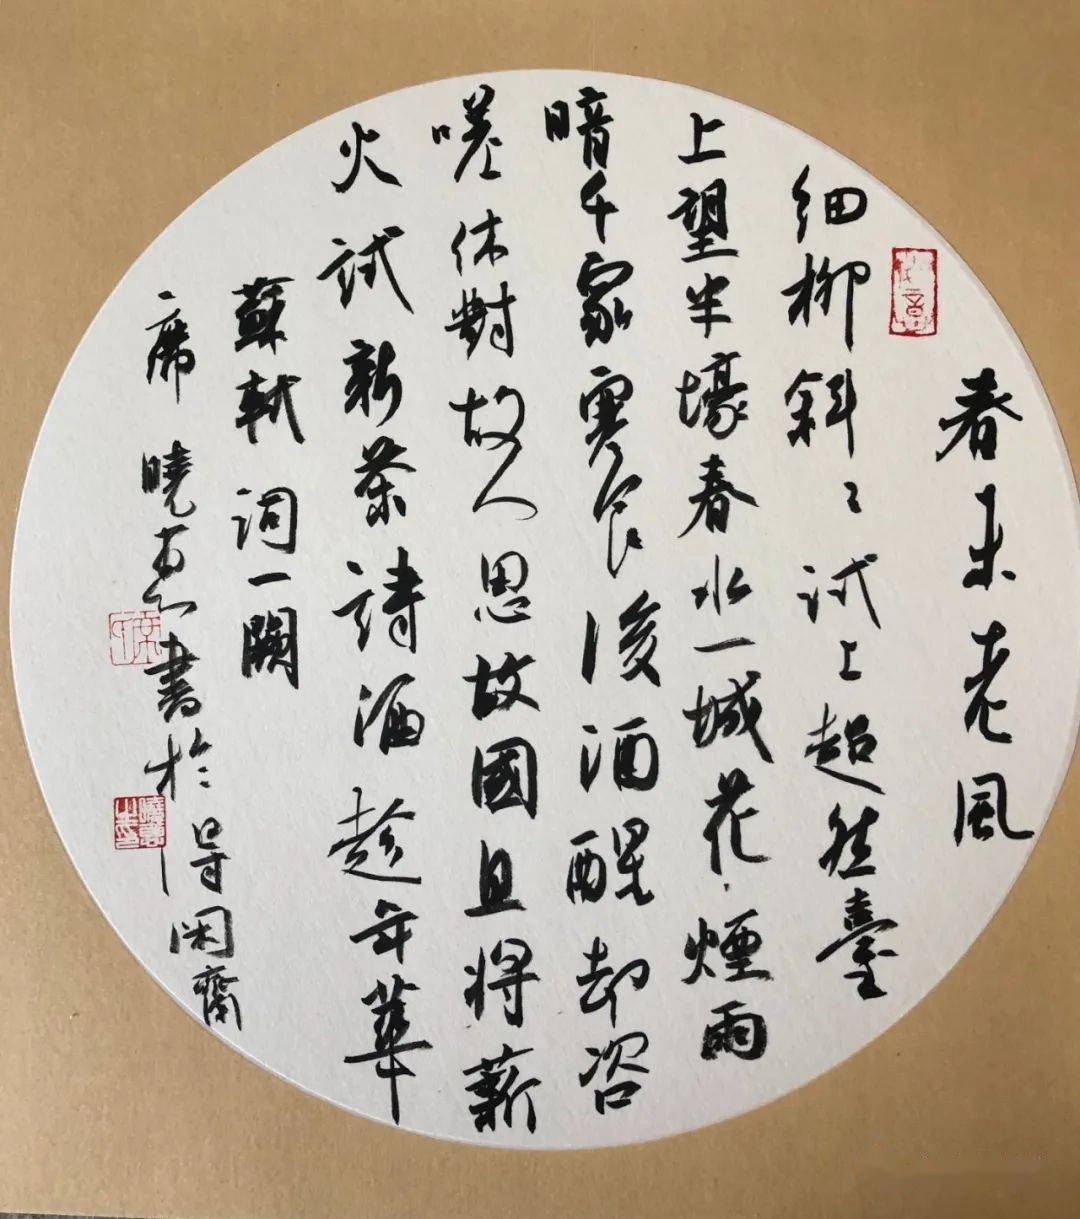 春未老風
細柳斜々試上超然臺
上望半壕春水一城花煙雨
暗千家寒食後酒醒却咨
嗟休對故人思故國且將薪
火試新茶詩酒趁年華
蘇軾詞一闋
席曉書於得閑齋